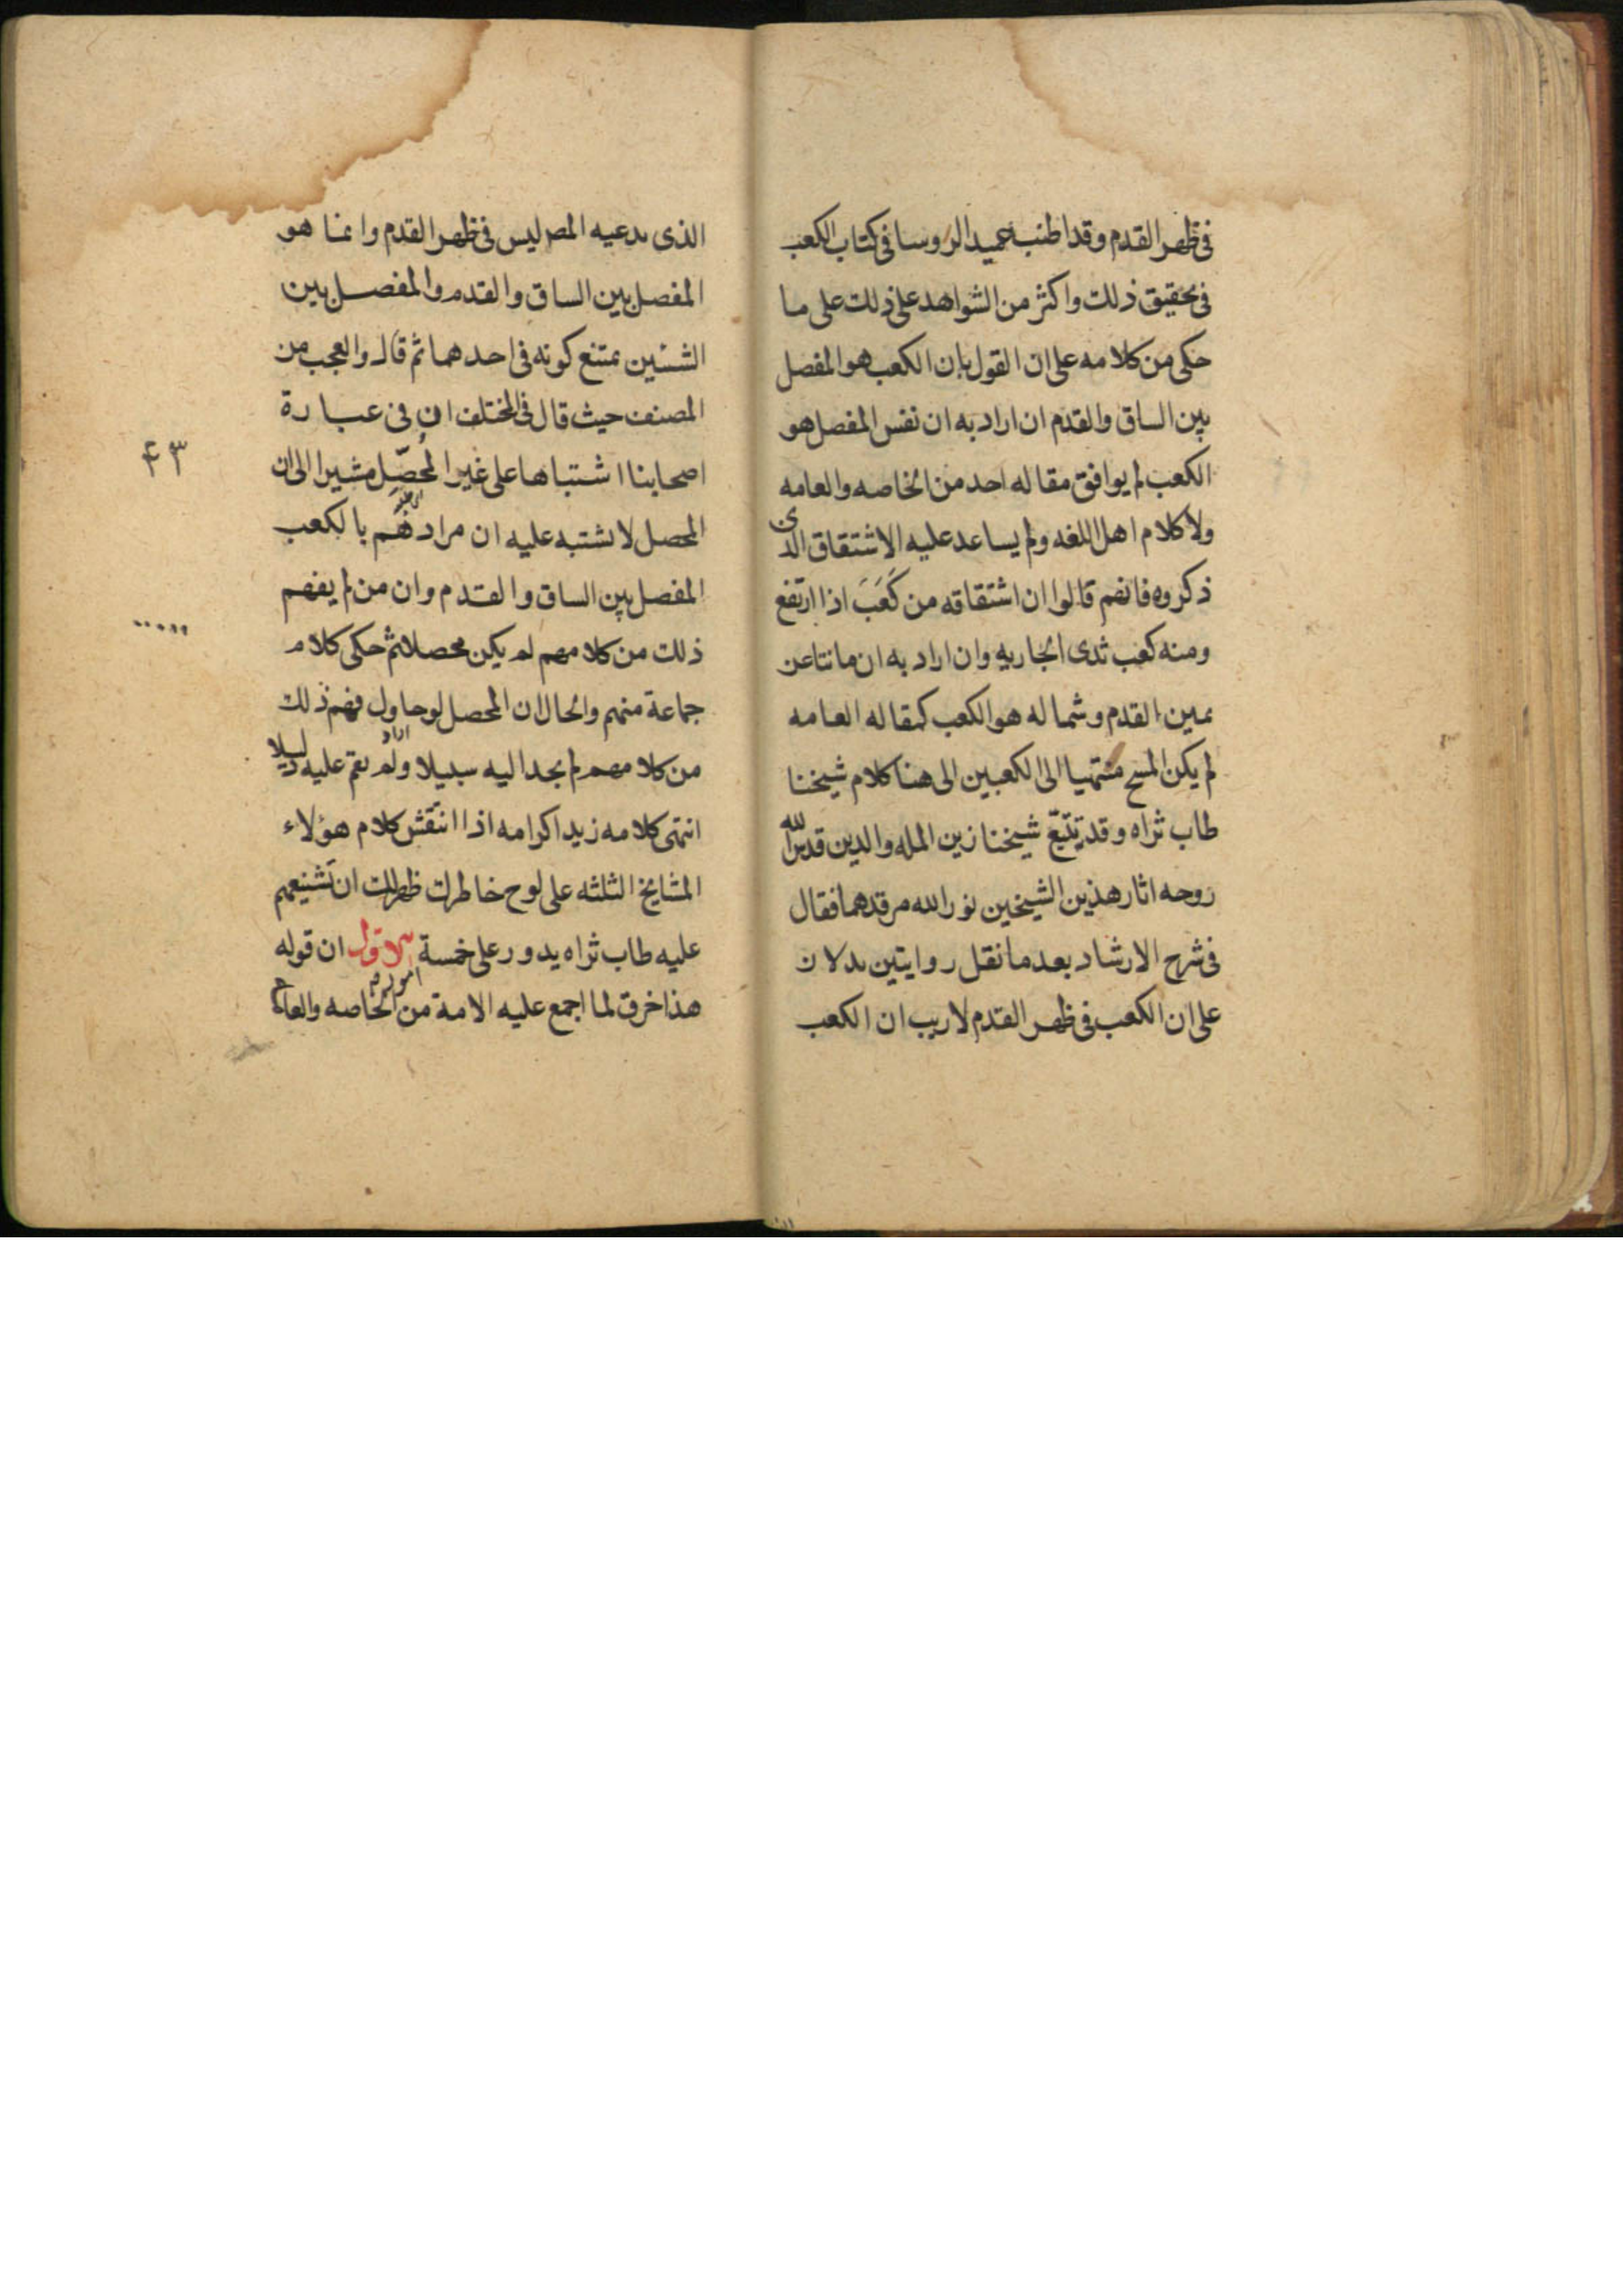 فى ظهر القدم وقد اطنب عميد الروسا فى كتاب الكعب
فى تحقيق ذلك واكثر من الشواهد على ذلك على ما
حكى من كلامه على ان القول بان الكعب هو المفصل
بين الساق والقدم ان اراد به ان نفس المفصل هو
الكعب لم يوافق مقاله احد من الخاصه والعامه
ولا كلام اهل اللغه ولم يساعد عليه الاشتقاق الذى
ذكروه فانهم قالوا ان اشتقاقه من كَعَبَ اذا ارتفع
ومنه كعب ثدى الجاريه وان اراد به ان ما نتا عن
يمين القدم وشماله هو الكعب كمقاله العامه
لم يكن المسح منتهيا الى الكعبين الى هنا كلام شيخنا
طاب ثراه وقد تتبّع شيخنا زين المله والدين قدس الله
روحه اثار هذين الشيخين نور الله مرقدهما فقال
فى شرح الارشاد بعد ما نقل روايتين يدلان
على ان الكعب فى ظهر القدم لا ريب ان الكعب
الذى يدعيه المص ليس فى ظهر القدم وانما هو
المفصل بين الساق والقدم والمفصل بين
الشئين يمتنع كونه فى احدهما ثم قال والعجب من
المصنف حيث قال فى المختلف ان فى عبارة
اصحابنا اشتباها على غير المُحصّل مشيرا الى ان
المحصل لا يشتبه عليه ان مرادهم بالكعب
المفصل بين الساق والقدم وان من لم يفهم
ذلك من كلامهم لم يكن محصلا ثم حكى كلام
جماعة منهم والحال ان المحصل لو حاول فهم ذلك
من كلامهم لم يجد اليه سبيلا ولم يقم عليه دليلا
انتهى كلامه زيد اكرامه اذا انتقش كلام هؤلاء
المشايخ الثلثه على لوح خاطرك ظهر لك ان تشنيعهم
عليه طاب ثراه يدور على خمسة امور الاول ان قوله
هذا خرق لما اجمع عليه الامة من الخاصه والعامه
۴۳